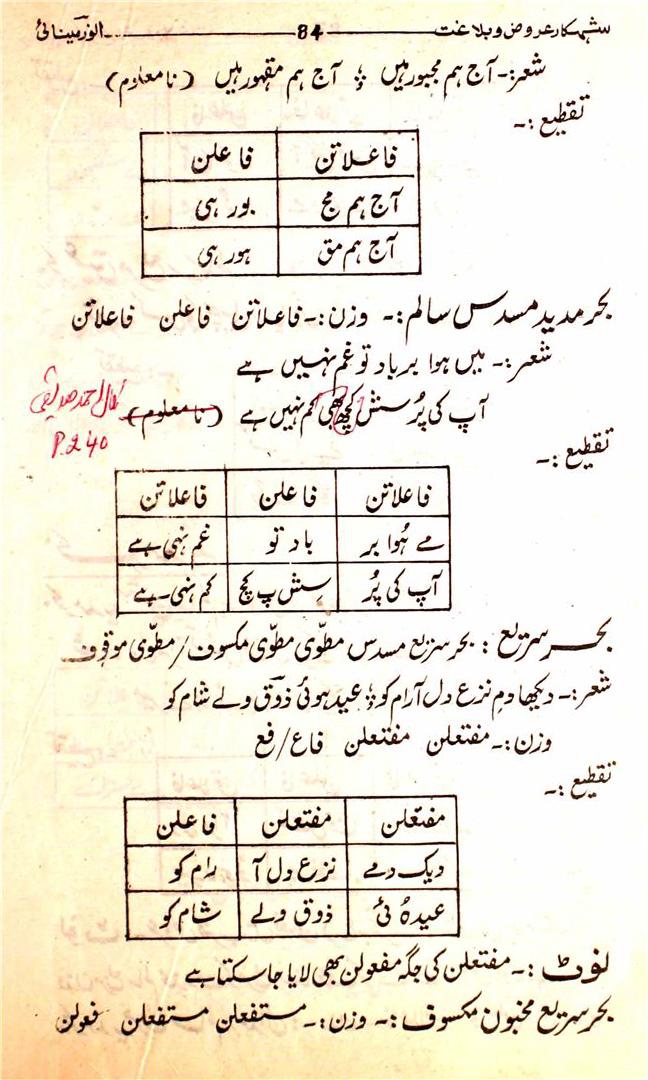 شہکار عروض و بلاغت 84 انور مینائی
شعر:۔ آج ہم مجبور ہیں ؛ آج ہم مقہور ہیں (نامعلوم)
تقطیع:۔
فاعلاتن فاعلن
آج ہم مج بور ہی
آج ہم مق ہور ہی
بحر مدید مسدس سالم:۔ وزن:۔ فاعلاتن فاعلن فاعلاتن
شعر:۔ میں ہوا برباد تو غم نہیں ہے
آپ کی پُرسش کچھ بھی کم نہیں ہے (نامعلوم) کمال احمد صدیقی
P.240
تقطیع:۔
فاعلاتن فاعلن فاعلاتن
مے ہُوا بر باد تو غم نہی ہے
آپ کی پُر سش پ کچ کم نہی ہے
بحر سریع: بحر سریع مسدس مطوّی مطوّی مکسوف/مطوّی موقوف
شعر:۔ دیکھا دمِ نزع دل آرام کو ؛ عید ہوئی ذوق ولے شام کو
وزن:۔ مفتعلن مفتعلن فاع/فع
تقطیع:۔
مفتعلن مفتعلن فاعلن
دیک دمے نزع دل آ رام کو
عید ہُ ئی ذوق ولے شام کو
نوٹ:۔ مفتعلن کی جگہ مفعولن بھی لایا جا سکتا ہے
بحر سریع مخبون مکسوف:۔ وزن:۔ مستفعلن مستفعلن فعولن